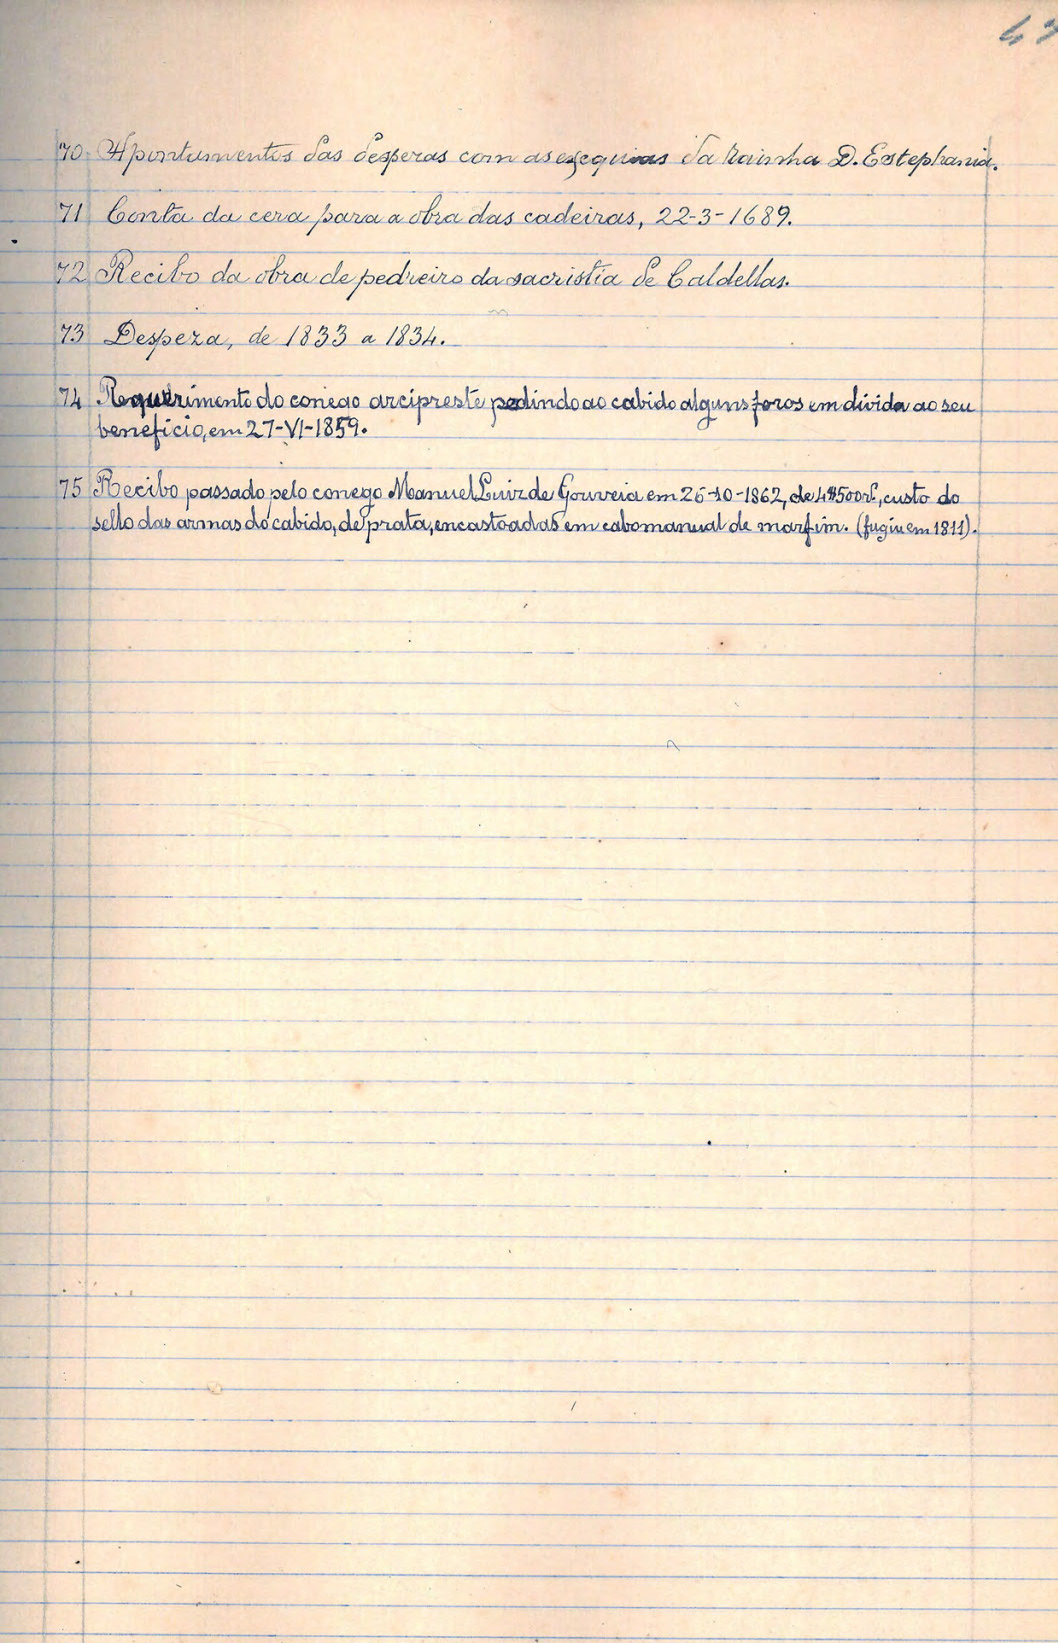 70 Apontamentos das despezas com as exequias da rainha D. Estephania.
71 Conta da cera para a obra das cadeiras, 22-3-1689.
72 Recibo da obra de pedreiro da sacristia de Caldellas.
73 Despeza, de 1833 a 1834.
74 Requerimento do conego arcipreste pedindo ao cabido alguns foros em divida ao seu
beneficio, em 27-VI-1859.
75 Recibo passado pelo conego Manuel Luiz de Gouveia em 26-10-1862, de 4$500 rs., custo do
sello das armas do cabido, de prata, encastoadas em cabo manual de marfim. (fugiu em 1811).